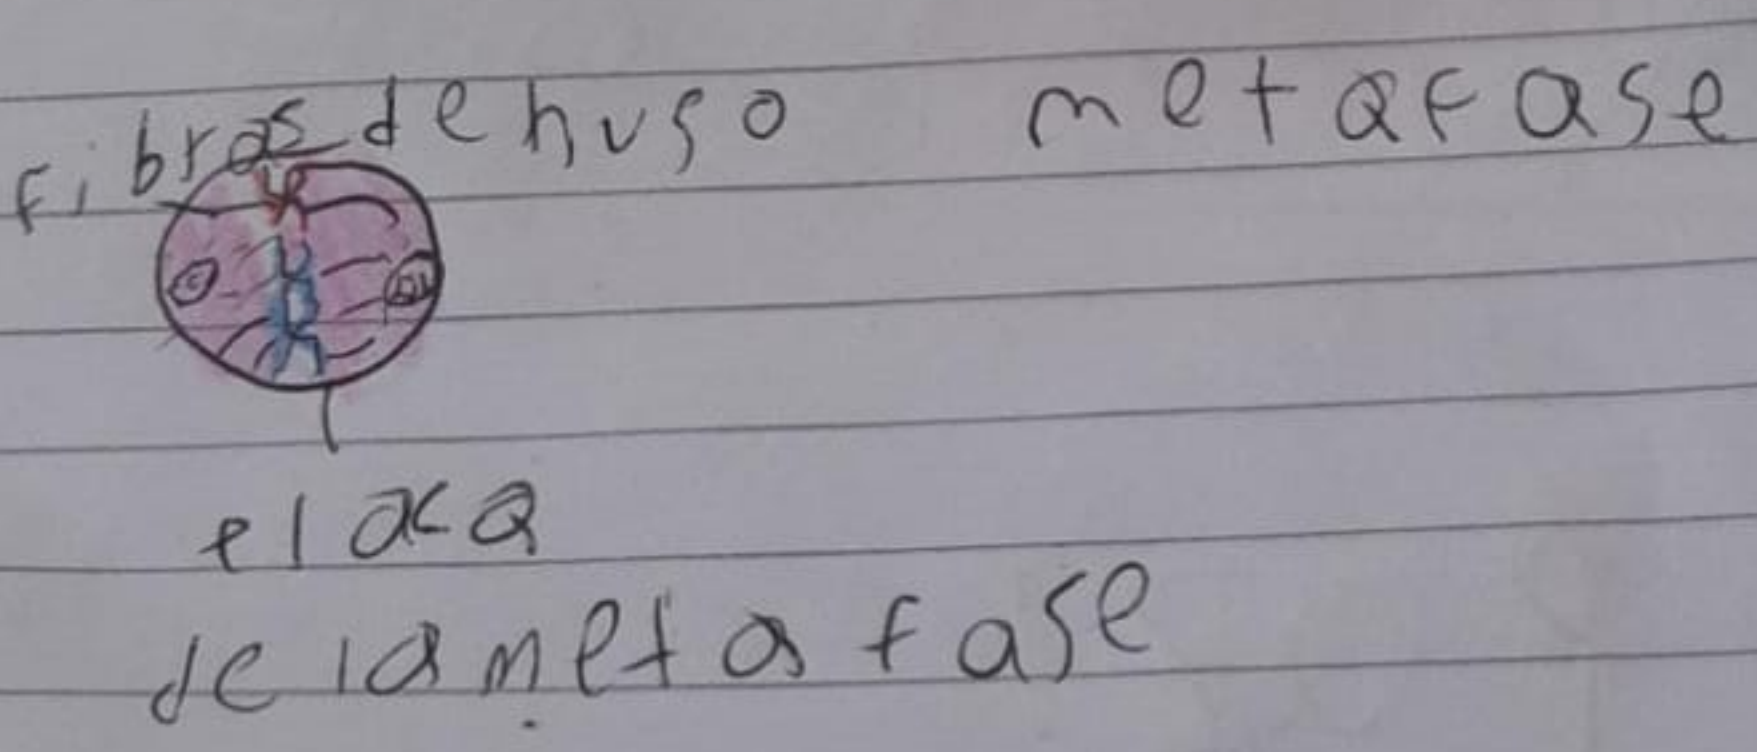 Fibras de huso metafase
elaca
de la metafase